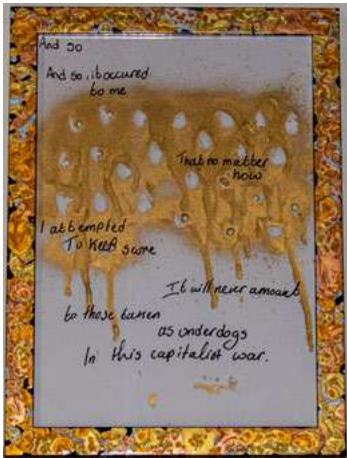 And so
And so, it occured
to me
That no matter
how
I attempted
To Keep score
It will never amount
to those taken
as underdogs
In this capitalist war.